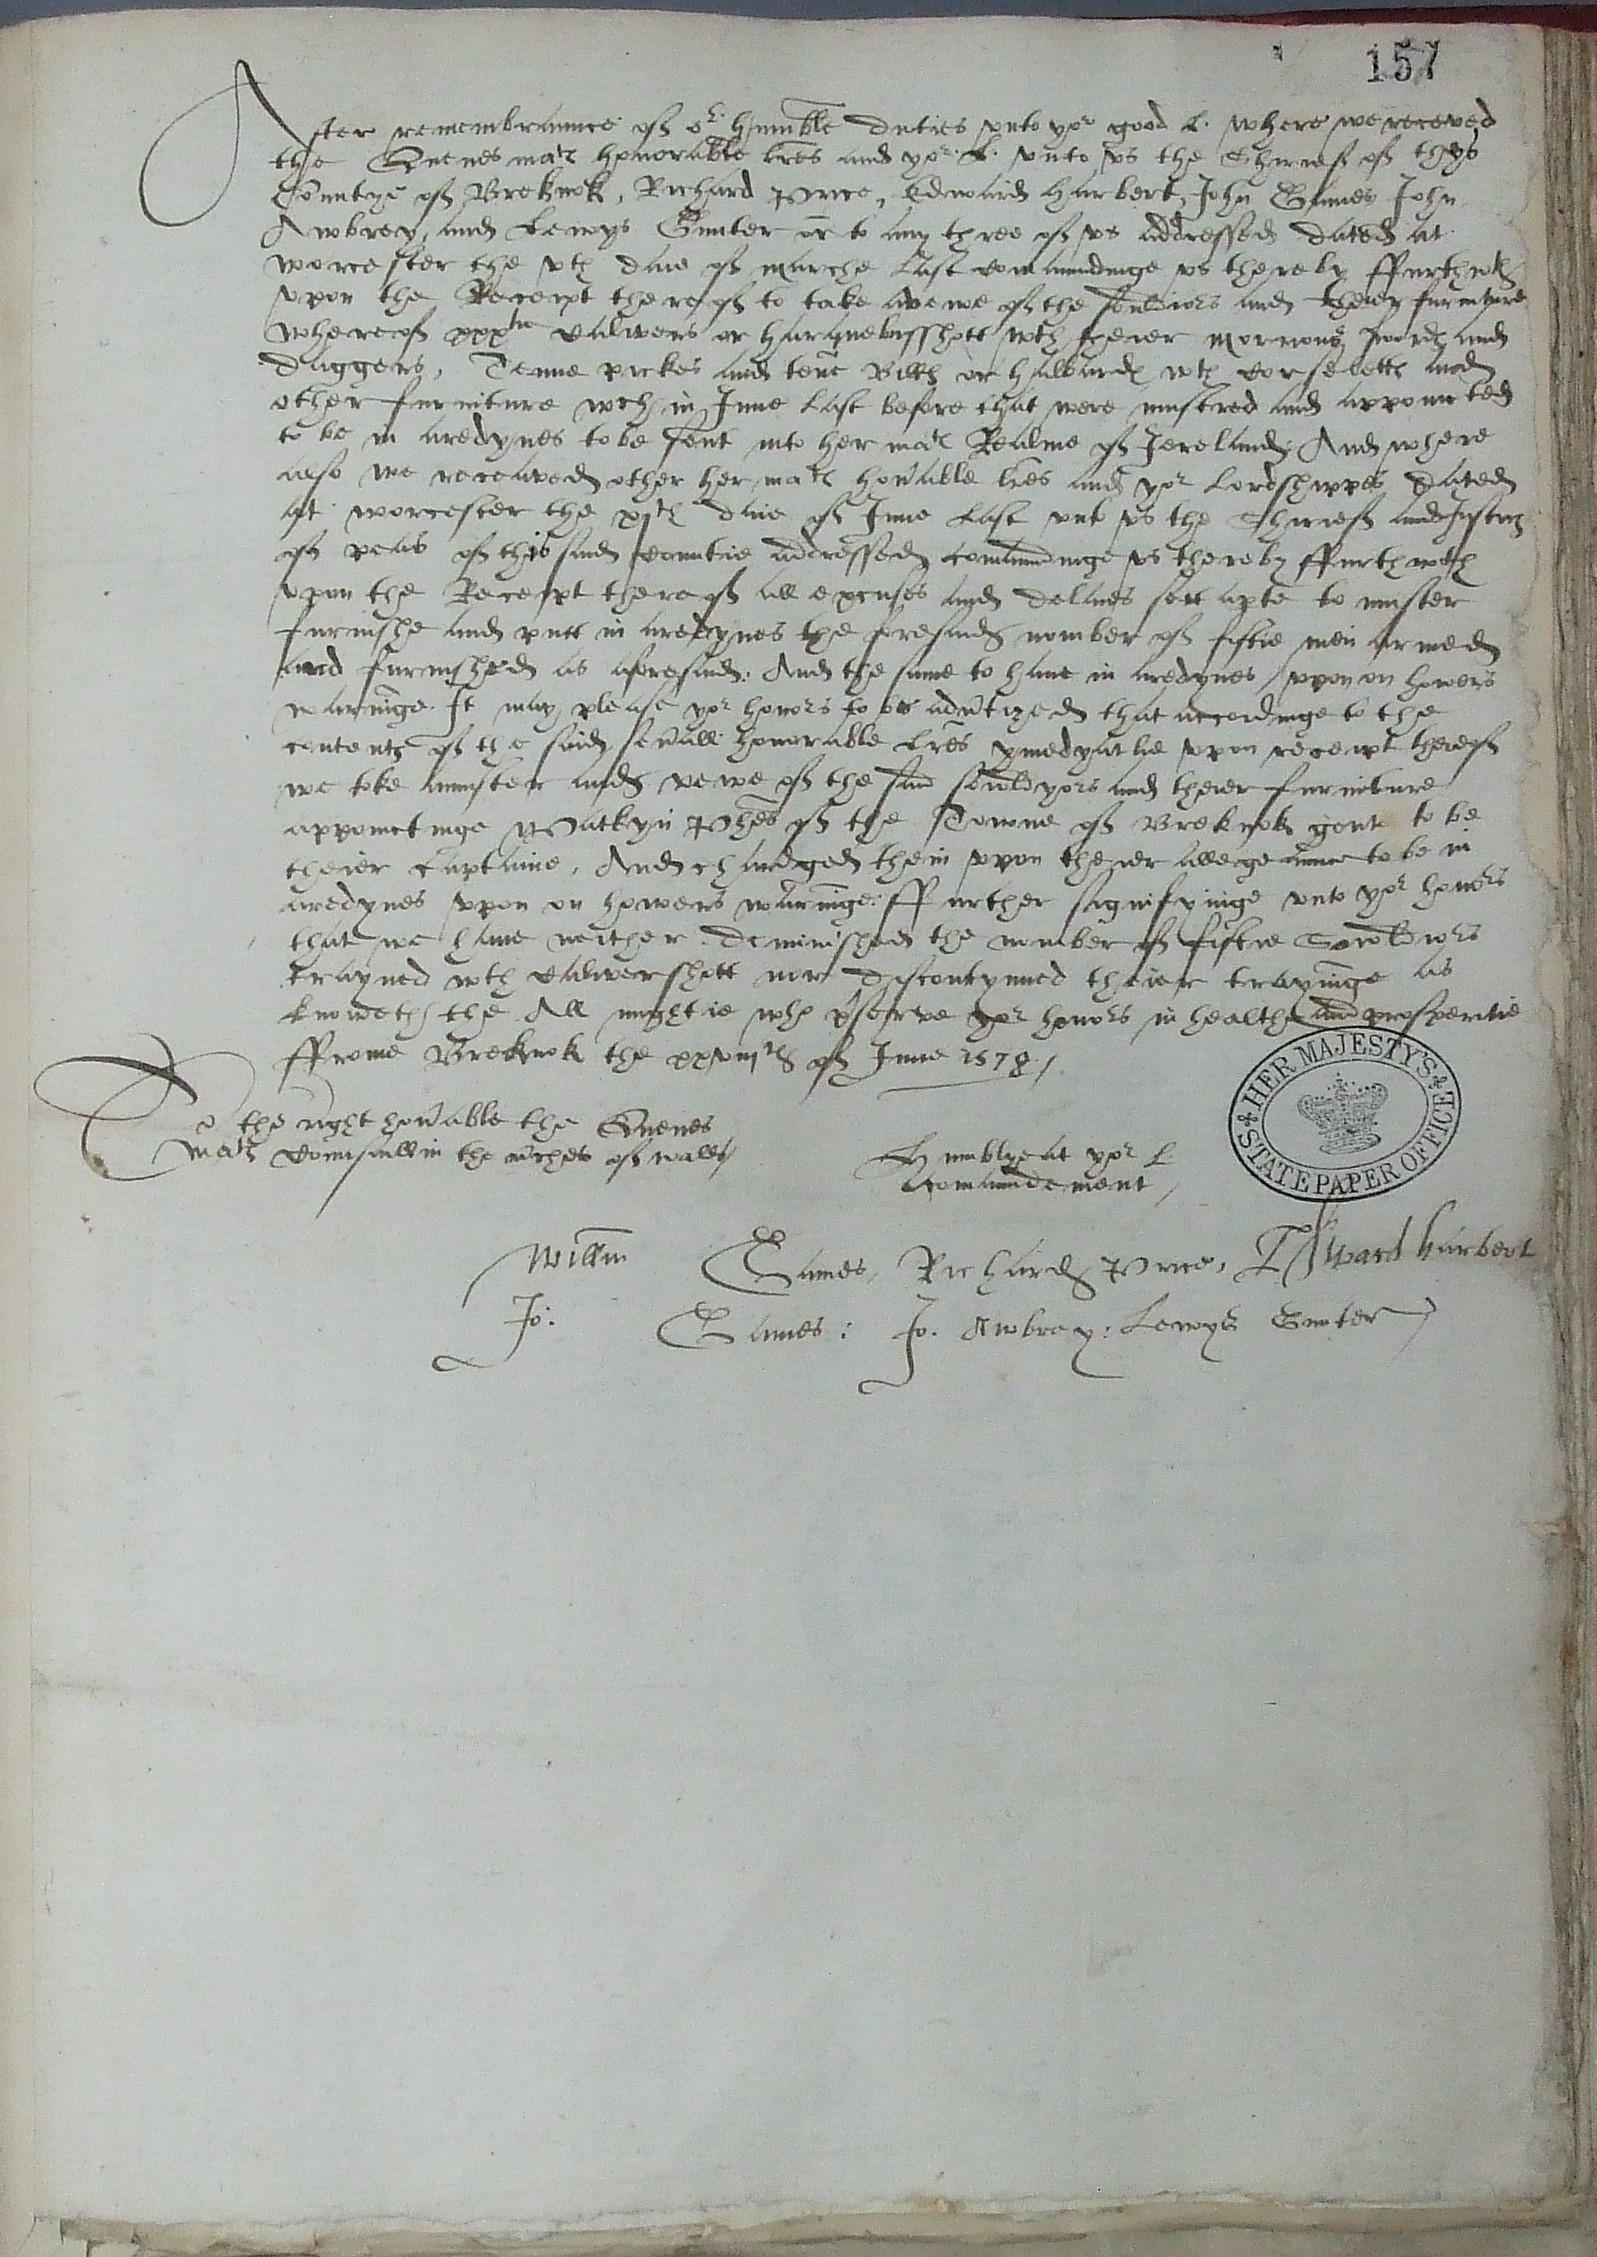 157
After remembraunce of or humble duties unto yor good L. where we receved
the Quenes matz honorable lres and yor L. unto us the Shirief of thys
Countye of Breknok, Richard Price, Edward Harbert, John Games John
Awbrey, and Lewys Gunter or to any three of us addressed dated at
worcester the vth daie of marche last comaundinge us thereby ffurthwth
upon the Receipt thereof to take a vewe of the souldiors and theier furniture
whereof xxxtie calivers or harquebusshott wth theier morrions, swords and
daggers, Tenne pickes and tene Bills or halbards wth corseletts and
other furniture wch in June last before that were mustred and appointed
to be in aredynes to be sent into her matz Realme of Jereland; And where
also we receaved other her matz honable lres and yor Lordshippes dated
at worcester the xjth daie of June last unto us the Shirief and Justics
of peas of this said countie addressed comaundinge us thereby ffurthwth
upon the Receipt thereof all excuses and delaies sett aparte to muster
furnishe and putt in aredynes the foresaid nomber of fiftie men armed
and furnished as aforesaid: And the same to have in aredynes upon on howers
warninge. It may please yor honors to be advtized that accordinge to the
contents of the said sevall honorable lres ymedyatlie upon receipt thereof
we toke a muster and vewe of the said souldyors and theier furniture
appoinctinge Watkyn Phes of the Towne of Breknok gent to be
theier Captaine, And chardged them upon theier allegeaunce to be in
aredynes upon on howers warninge: ffurther signifyinge unto yor honors
that we have neither deminished the number of fiftie Souldiors
trayned wth caliver shott nor discontynued theier trayninge as
knoweth the Allmightie who pserve yor honors in healthe and prosperitie
ffrome Breknok the xxviijth of June 1578./
To the right honable the Quenes
matz Counsaill in the mches of walls
Humblye at yor L
Comaundement,
HER MAJESTY'S STATE PAPER OFFICE
Willm Games, Richard Price, Edward harbert
Jo: Games: Jo. Awbrey: Lewys Gunter